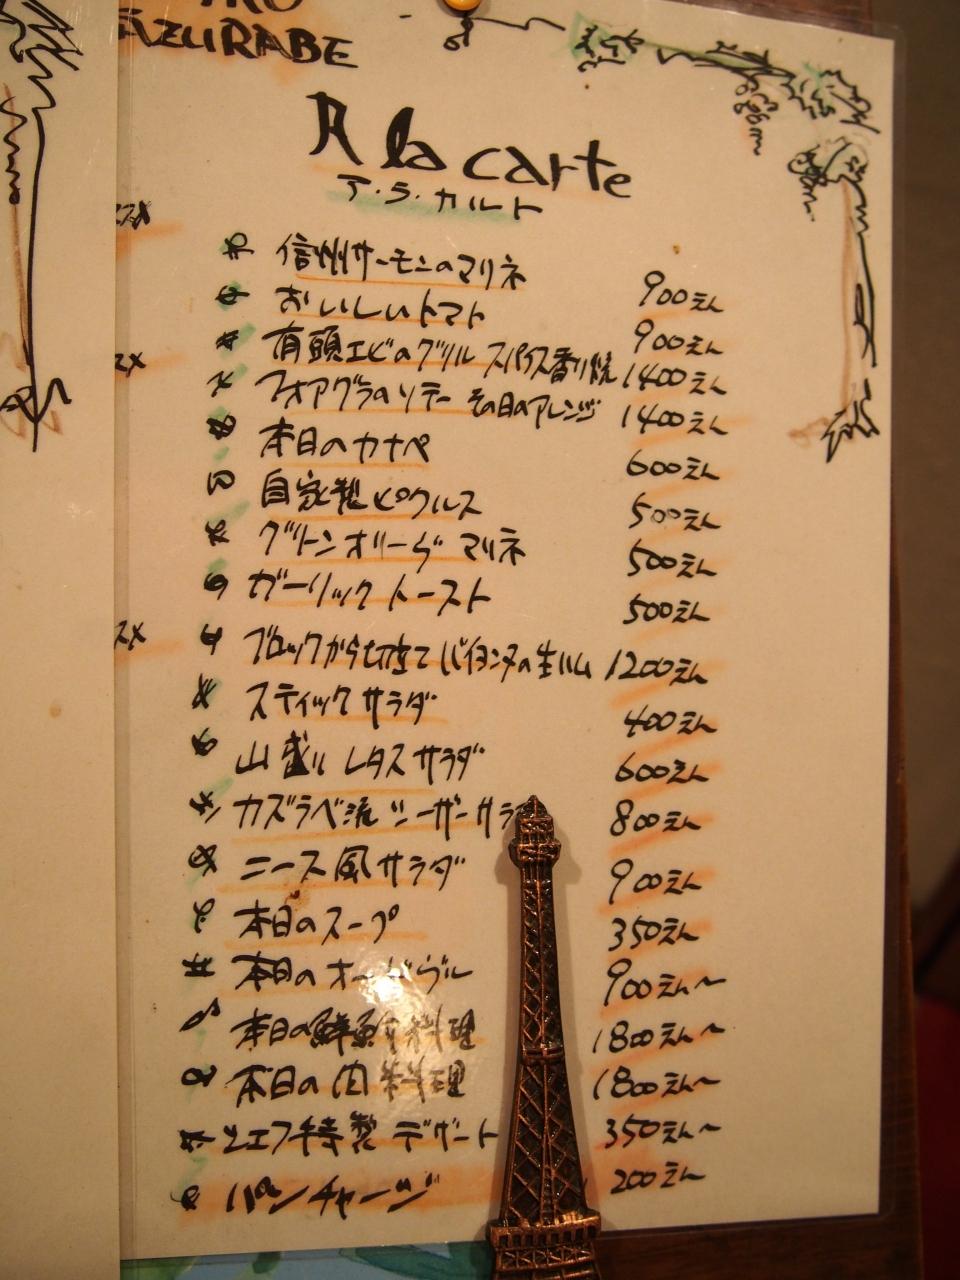 AZURABE
A la carte
ア・ラ・カルト
信州サーモンのマリネ 900えん
おいしいトマト 900えん
有頭エビのグリル スパイス香り焼 1400えん
フォアグラのソテー その日のアレンジ 1400えん
本日のカナペ 600えん
自家製ピクルス 500えん
グリーンオリーヴ マリネ 500えん
ガーリックトースト 500えん
ブロックから切立て バイヨンヌの生ハム 1200えん
スティックサラダ 400えん
山盛り レタスサラダ 600えん
カズラベ流 シーザーサラ 800えん
ニース風サラダ 900えん
本日のスープ 350えん
本日のオードヴル 900えん〜
本日の鮮魚料理 1800えん〜
本日の肉料理 1800えん〜
シェフ特製 デザート 350えん〜
パンチャージ 200えん